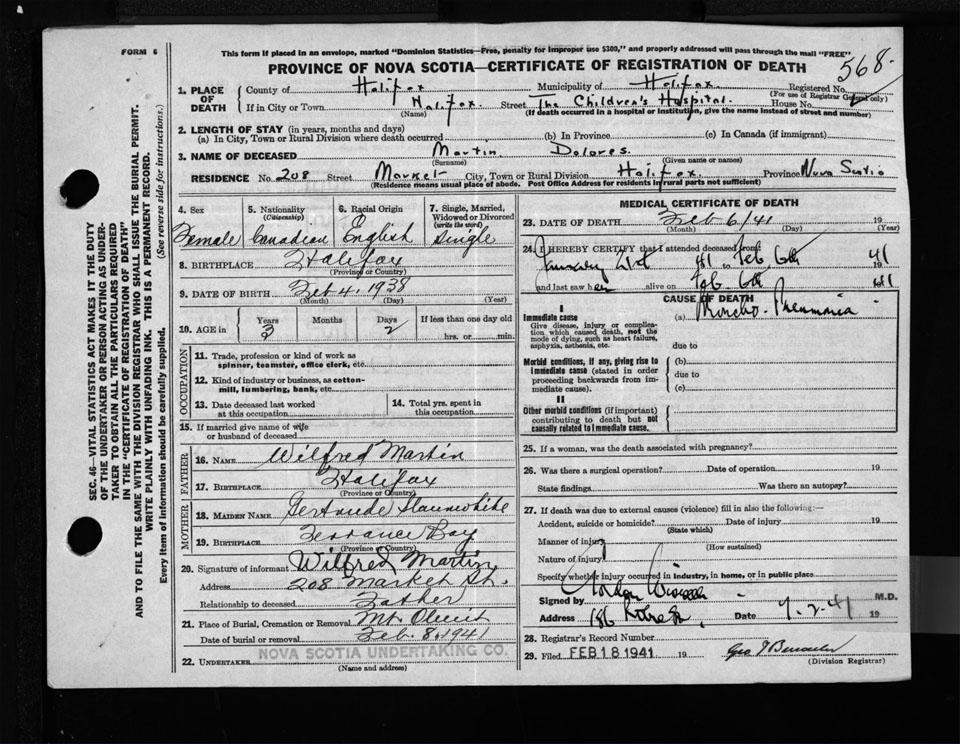 FORM 6
This form if placed in an envelope, marked "Dominion Statistics—Free, penalty for improper use $300," and properly addressed will pass through the mail "FREE"
PROVINCE OF NOVA SCOTIA—CERTIFICATE OF REGISTRATION OF DEATH
568
SEC. 46—VITAL STATISTICS ACT MAKES IT THE DUTY
OF THE UNDERTAKER OR PERSON ACTING AS UNDER-
TAKER TO OBTAIN ALL THE PARTICULARS REQUIRED
IN THE "CERTIFICATE OF REGISTRATION OF DEATH"
AND TO FILE THE SAME WITH THE DIVISION REGISTRAR WHO SHALL ISSUE THE BURIAL PERMIT.
WRITE PLAINLY WITH UNFADING INK. THIS IS A PERMANENT RECORD.
Every item of information should be carefully supplied.
(See reverse side for instructions.)
1. PLACE OF DEATH
County of Halifax Municipality of Halifax Registered No.
(For use of Registrar General only)
If in City or Town Halifax Street The Children's Hospital. House No.
(Name) (If death occurred in a hospital or institution, give the name instead of street and number)
2. LENGTH OF STAY (in years, months and days)
(a) In City, Town or Rural Division where death occurred (b) In Province (c) In Canada (if immigrant)
3. NAME OF DECEASED Martin, Dolores.
(Surname) (Given name or names)
RESIDENCE No. 208 Street Market City, Town or Rural Division Halifax. Province Nova Scotia
(Residence means usual place of abode. Post Office Address for residents in rural parts not sufficient)
4. Sex Female
5. Nationality (Citizenship) Canadian
6. Racial Origin English
7. Single, Married, Widowed or Divorced (write the word) Single
8. BIRTHPLACE Halifax
(Province or Country)
9. DATE OF BIRTH Feb 4, 1938
(Month) (Day) (Year)
10. AGE in Years 3 Months Days 2 If less than one day old hrs. or min.
OCCUPATION
11. Trade, profession or kind of work as
spinner, teamster, office clerk, etc.
12. Kind of industry or business, as cotton-
mill, lumbering, bank, etc.
13. Date deceased last worked
at this occupation
14. Total yrs. spent in
this occupation
15. If married give name of wife
or husband of deceased
FATHER
16. NAME Wilfred Martin
17. BIRTHPLACE Halifax
(Province or Country)
MOTHER
18. MAIDEN NAME Gertrude Slaunwhite
19. BIRTHPLACE Terrance Bay
(Province or Country)
20. Signature of informant Wilfred Martin
Address 208 Market St.
Relationship to deceased Father
21. Place of Burial, Cremation or Removal Mt. Olivet
Date of burial or removal Feb. 8, 1941
22. UNDERTAKER NOVA SCOTIA UNDERTAKING CO.
(Name and address)
MEDICAL CERTIFICATE OF DEATH
23. DATE OF DEATH Feb 6/41 19
(Month) (Day) (Year)
24. I HEREBY CERTIFY that I attended deceased from
January 21st 41 to Feb 6th 1941
and last saw her alive on Feb 6th 1941
CAUSE OF DEATH
I
Immediate cause
Give disease, injury or complica-
tion which caused death, not the
mode of dying, such as heart failure,
asphyxia, asthenia, etc.
(a) Broncho-Pneumonia
due to
Morbid conditions, if any, giving rise to
immediate cause (stated in order
proceeding backwards from im-
mediate cause).
(b)
due to
(c)
II
Other morbid conditions (if important)
contributing to death but not
causally related to immediate cause.
25. If a woman, was the death associated with pregnancy?
26. Was there a surgical operation? Date of operation 19
State findings Was there an autopsy?
27. If death was due to external causes (violence) fill in also the following:—
Accident, suicide or homicide? Date of injury 19
(State which)
Manner of injury
(How sustained)
Nature of injury
Specify whether injury occurred in industry, in home, or in public place
Signed by M.D.
Address 186 Date 7.2.41 19
28. Registrar's Record Number
29. Filed FEB 18 1941 19
(Division Registrar)